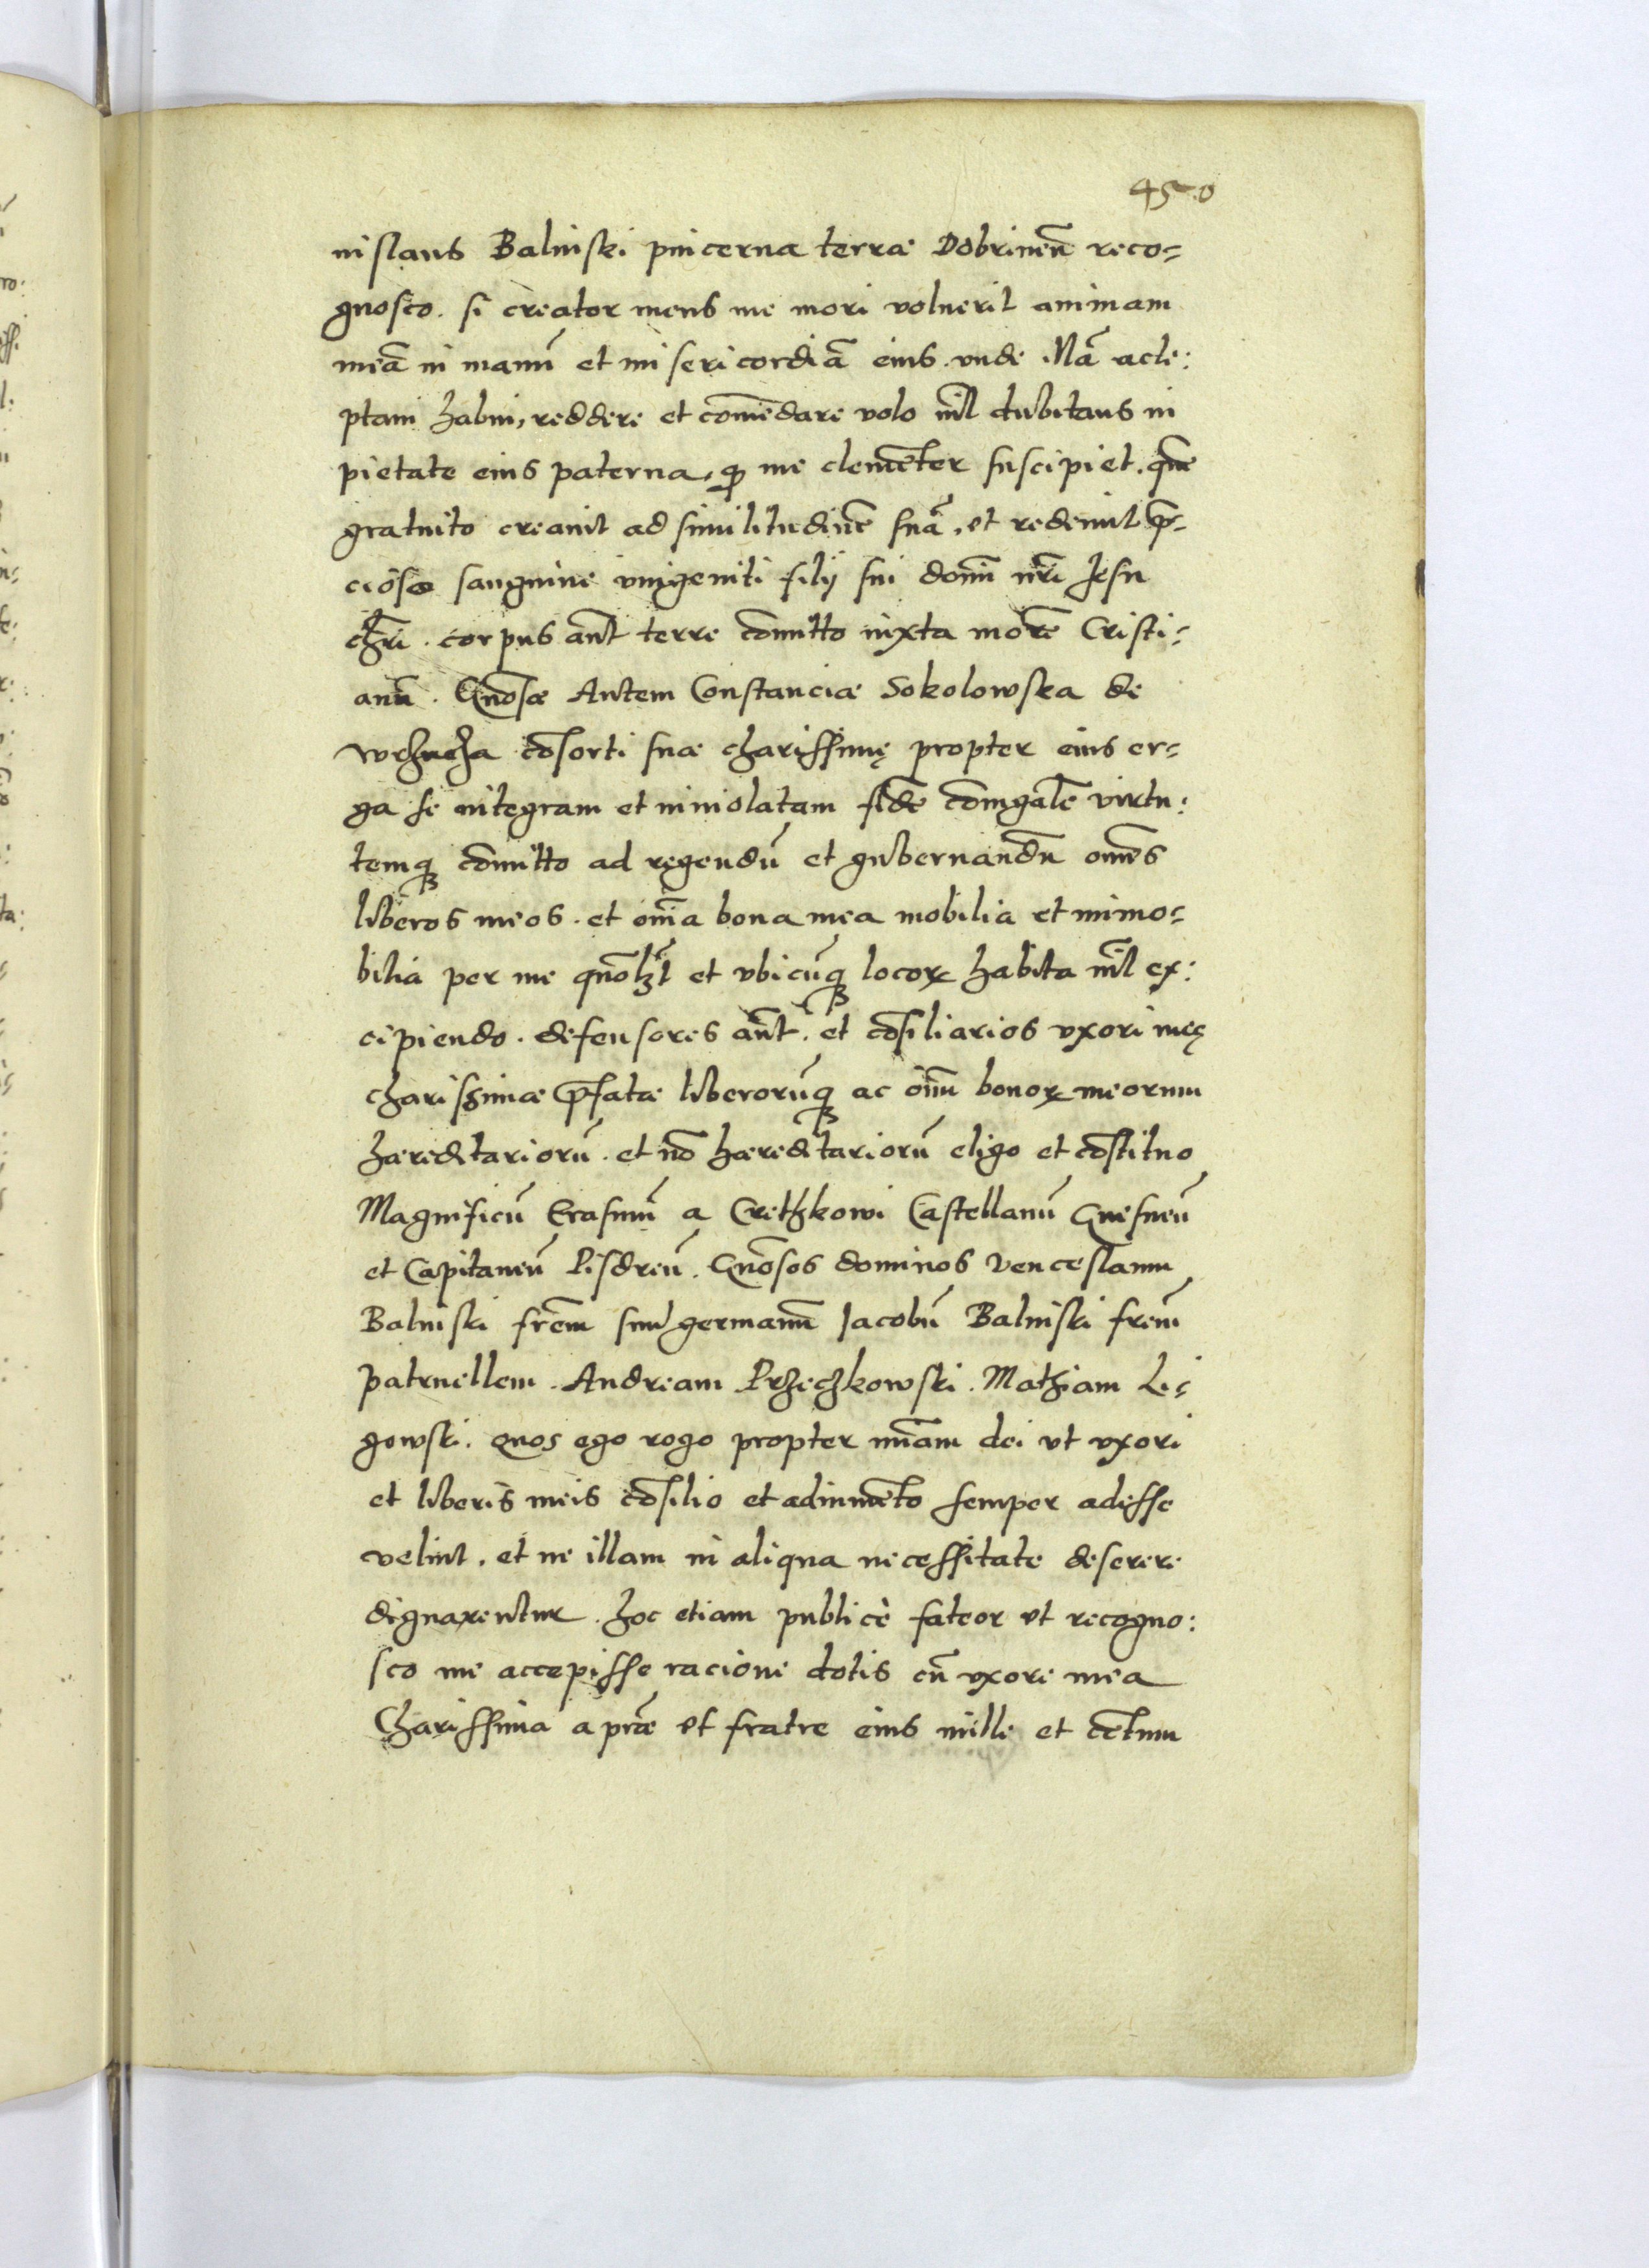 45.0
nislaus Baliński pincerna terrae Dobrineñ reco-
gnosco. si creator meus me mori voluerit animam
meā in manū et misericordiā eius. vnde illā acce:
ptam habui, reddere et comēdare volo nĩl dubitans in
pietate eius paterna, qp me clemēter suscipiet. quē
gratuito creauit ad similitudinē suā, et redemit p̄-
cioso sanguine vnigeniti filij sui domĩ nr̃i Jesu
chr̃i. corpus aũt terre comitto iuxta morē Cristi-
anū. Gñosae Autem Constanciae Sokolowska de
cōsorti suae charissimę propter eius er-
ga se integram et inuiolatam fidē coniugalē virtu:
temqꝫ comitto ad regendū et gubernandū omēs
liberos meos. et oĩa bona mea mobilia et immo-
bilia per me quõlꝫt et vbicūqꝫ locoꝝ habita nĩl ex:
cipiendo. defensores aũt. et cōsiliarios vxori meę
charissimae p̄fatae liberorūqꝫ ac oĩm bonoꝝ meorum
haereditariorū. et nō haereditariorū eligo et cōstituo
Magnificū Erasmū a Crethkowi Castellanū Gnesneñ
et Capitaneū Pisdreñ. Gñosos dominos Venceslaum
Baliński fr̃em suū germanū Jacobū Baliński fr̃em
patruellem. Andream Przeczkowski. Mathiam Le-
gowski. Quos ego rogo propter mĩam dei vt vxori
et liberis meis cōsilio et adiumēto semper adesse
velint. et ne illam in aliqua necessitate deserere
dignarentur. hoc etiam publicè fateor et recogno:
sco me accepisse racione dotis cū vxore mea
Charissima a pr̃e et fratre eius mille et cētum